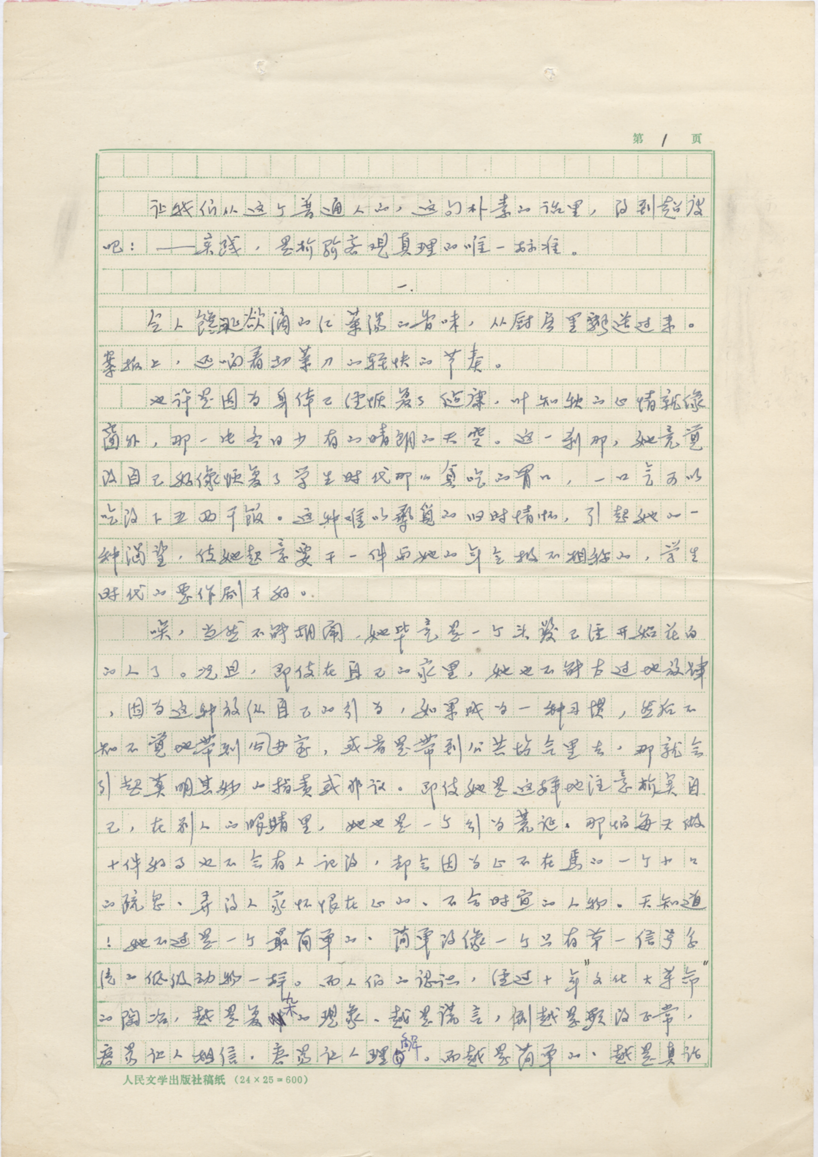 第 1 页
让我们从这个普通人的，这句朴素的话里，得到启
吧：——实践，是检验客观真理的唯一标准。
一.
令人馋涎欲滴的红菜汤的香味，从厨房里飘送过来。
案板上，还响着切菜刀的轻快的节奏。
也许是因为身体已经恢复了健康，叶知秋的心情就像
窗外，那一片冬日少有的晴朗的天空。这一刹那，她竟觉
得自己好像恢复了学生时代那以贪吃的胃口，一口气可以
吃得下五两干饭。这种难以的旧时情怀，引起她的一
种渴望，使她起意要干一件与她的年令极不相称的，学生
时代的恶作剧才好。
唉，当然不能胡闹，她毕竟是一个头发已经开始花白
的人了。况且，即使在自己的家里，她也不能太过地放肆
，因为这种放纵自己的引为，如果成为一种习惯，然后不
知不觉地带到公办室，或者是带到公共场合里去，那就会
引起莫明其妙的指责或非议。即使她是这样地注意检点自
己，在别人的眼睛里，她也是一个引为荒诞。那怕每天做
十件好事也不会有人记得，却会因为心不在焉的一个小小
的疏忽、弄得人家怀恨在心的、不合时宜的人物。天知道
！她不过是一个最简单的、简单得像一个只有第一信号系
统的低级动物一样。而人们的认识，经过十年“文化大革命”
的陶冶，越是复杂的现象、越是谎言，倒越是显得正常，
容易让人相信，容易让人理解。而越是简单的、越是真话
人民文学出版社稿纸（24×25=600）